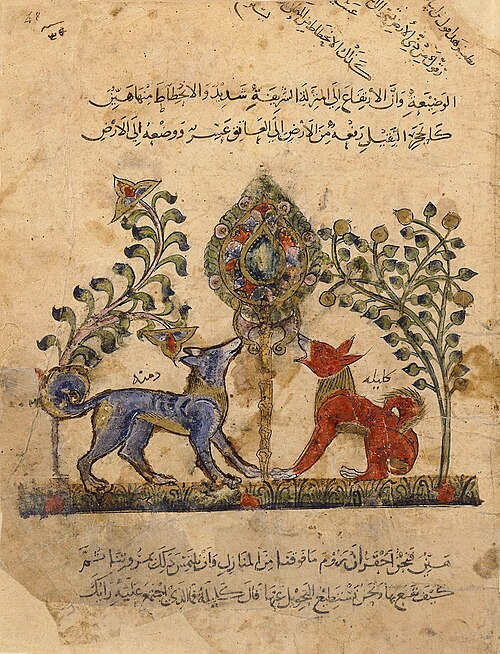 كذلك الانحطاط
الوضيعة وان الارتفاع الى المنزلة الشريفة شديد والانحطاط منها هين
كالحجر الثقيل رفعه من الارض الى العاتق عسر ووضعه الى الارض
دمنه
كليله
هين فنحن احق ان نروم ما فوقنا من المنازل وان نلتمس ذلك ثم
كيف نقنع بها ونحن نستطيع التحويل عنها قال كليلة فما الذي اجتمع عليه رايك